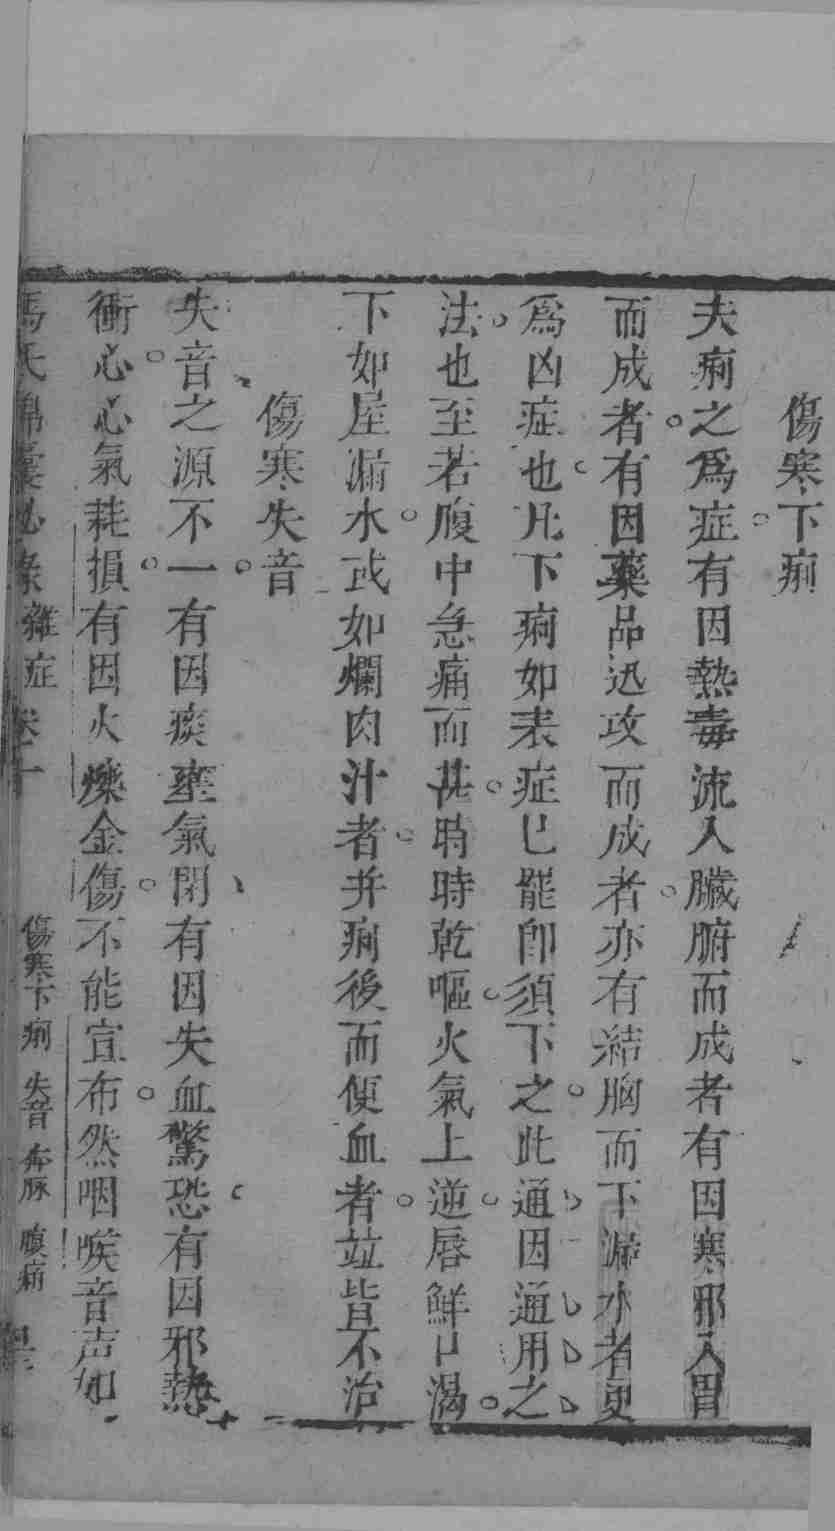 傷寒下痢
夫痢之爲症有因熱毒流入臟腑而成者有因寒邪入胃
而成者有因藥品迅攻而成者亦有結胸而下漏水者更
爲凶症也凡下痢如表症已罷卽須下之此通因通用之
法也至若腹中急痛而甚時時乾嘔火氣上逆唇鮮口渴
下如屋漏水或如爛肉汁者并痢後而便血者竝皆不治
傷寒失音
失音之源不一有因痰壅氣閉有因失血驚恐有因邪熱
衝心心氣耗損有因火爍金傷不能宣布然咽喉音声如
馮氏錦囊秘錄雜症卷十 傷寒下痢 失音 奔豚 腹痛